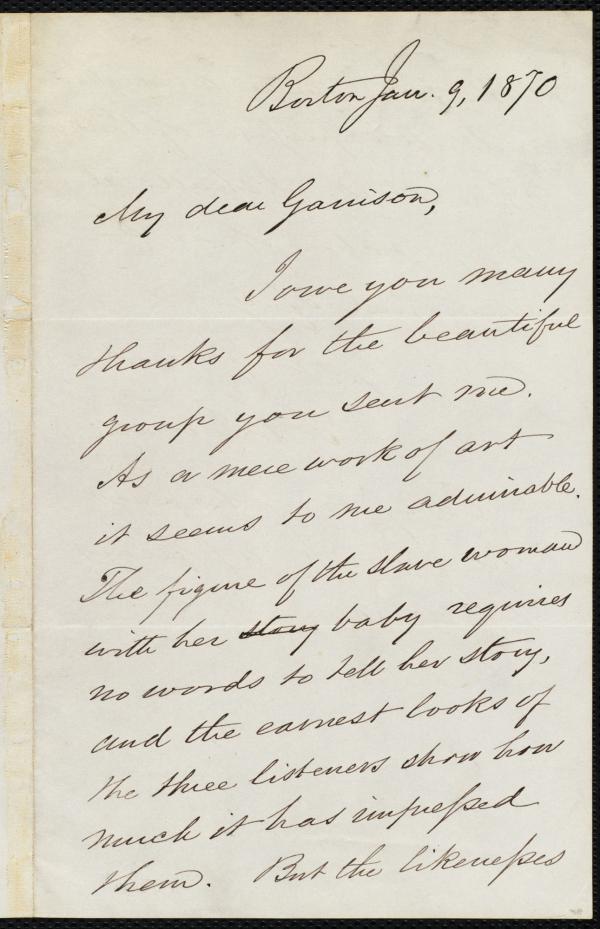 Boston Jan. 9, 1870
My dear Garrison,
I owe you many
thanks for the beautiful
group you sent me.
As a mere work of art
it seems to me admirable.
The figure of the slave woman
with her story baby requires
no words to tell her story,
and the earnest looks of
the three listeners show how
much it has impressed
them. But the likenesses